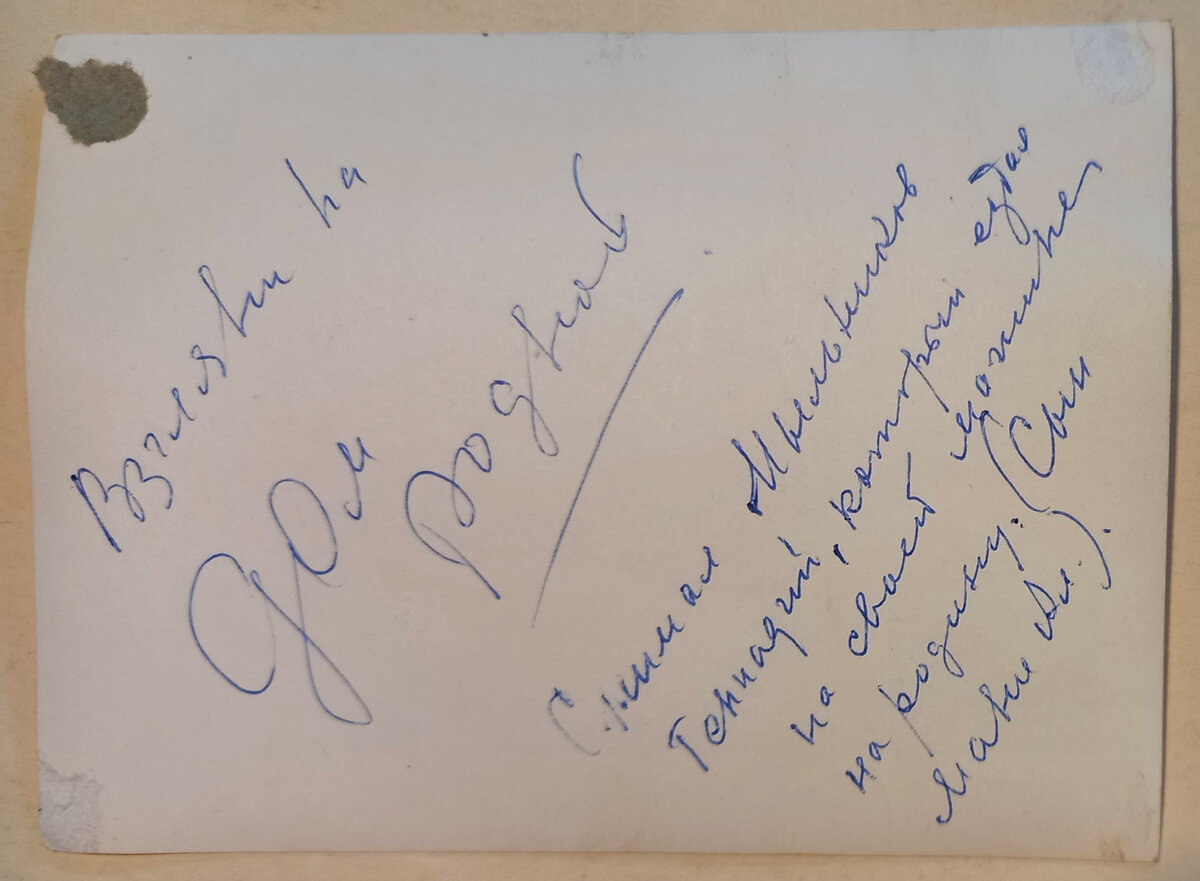 Взгляни на
дом
родной
Снимал Мыльников
Геннадий, который ездил
на своей машине
на родину. (Сын
Мани Ал.).